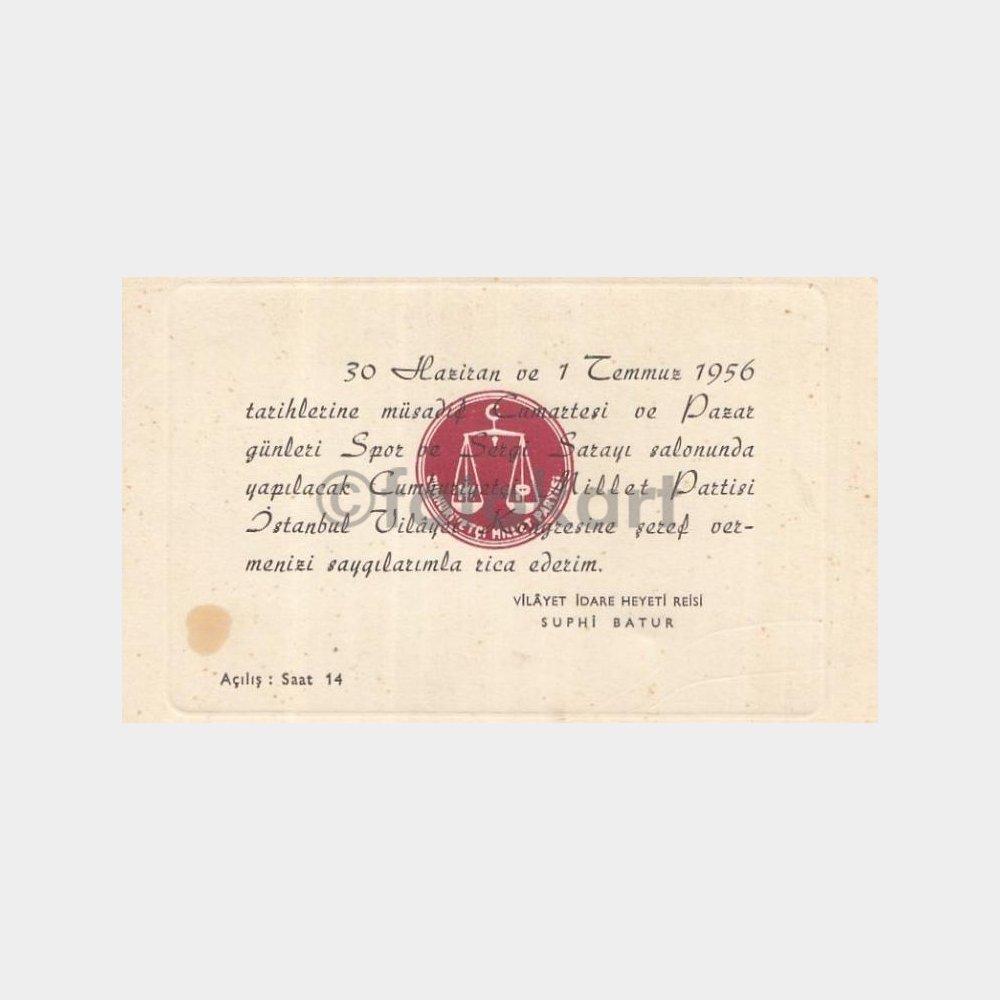 30 Haziran ve 1 Temmuz 1956
tarihlerine müsadif Cumartesi ve Pazar
günleri Spor ve Sergi Sarayı salonunda
yapılacak Cumhuriyetçi Millet Partisi
İstanbul Vilâyet Kongresine şeref ver-
menizi saygılarımla rica ederim.
CUMHURİYETÇİ MİLLET PARTİSİ
VİLÂYET İDARE HEYETİ REİSİ
SUPHİ BATUR
Açılış : Saat 14